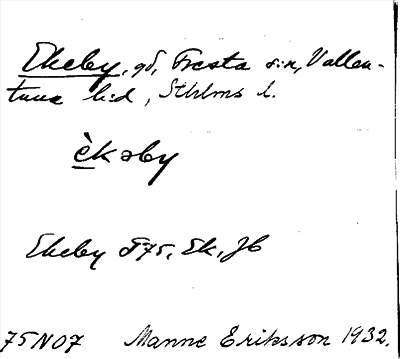 Ekeby, gd, Fresta s:n, Vallen-
tuna h:d, Sthlms l.
èkəby
Ekeby 875, Ek, Jb
75N07 Manne Eriksson 1932.